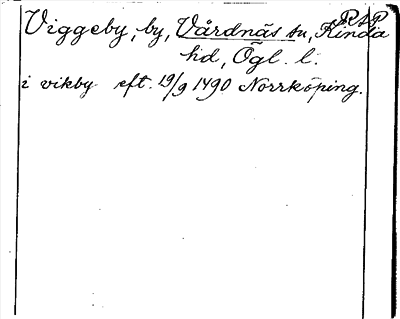 RAP
Viggeby, by, Vårdnäs sn, Kinda
hd, Ögl. l.
i vikby eft. 19/9 1490 Norrköping.